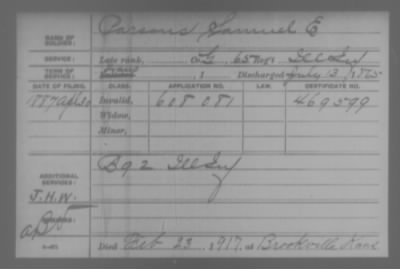 NAME OF SOLDIER: Parsons Samuel E
SERVICE: Late rank, Co. G, 65 Reg't Ill Inf
TERM OF SERVICE: Enlisted , 1 Discharged July 13, 1865
DATE OF FILING. CLASS. APPLICATION NO. LAW. CERTIFICATE NO.
1887 Apl 30 Invalid, 608 081 469599
Widow,
Minor,
ADDITIONAL SERVICES: Bg 2 Ill Inf
J.H.W.
REMARKS:
Died Feb 23, 1917, at Brookville Kans